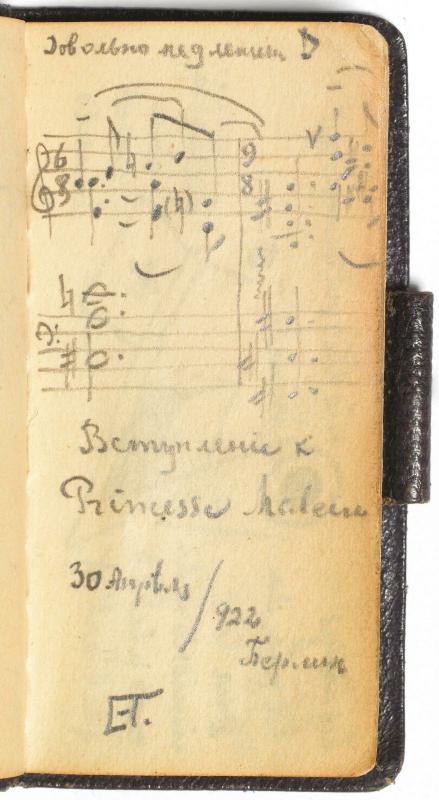 Довольно медленно
6
8
9
8
Вступление к
Princesse Maleine
30 Апрѣля / 922
Берлин